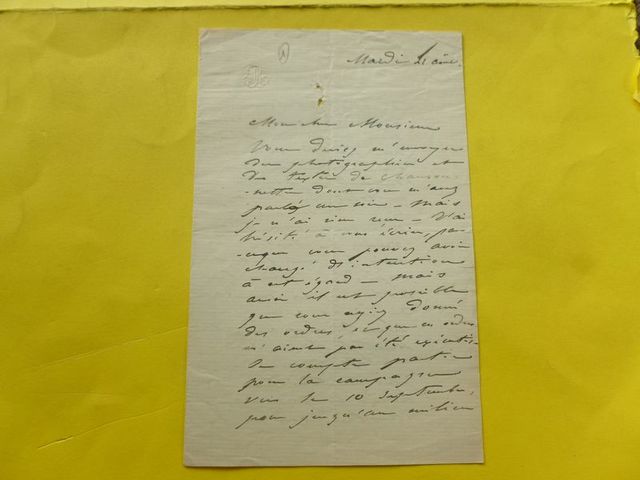 Mardi 21 août.
Mon cher Monsieur
Vous deviez m'envoyer
des photographies et
des textes de chanson-
-nettes dont vous m'avez
parlé un soir - mais
je n'ai rien reçu - J'ai
hésité à vous écrire, par
ceque vous pouvez avoir
changé d'intention
à cet égard - mais
aussi il est possible
que vous ayiez donné
des ordres, et que ces ordres
n'aient pas été exécutés -
Je compte partir
pour la campagne
vers le 10 septembre,
pour jusqu'au milieu